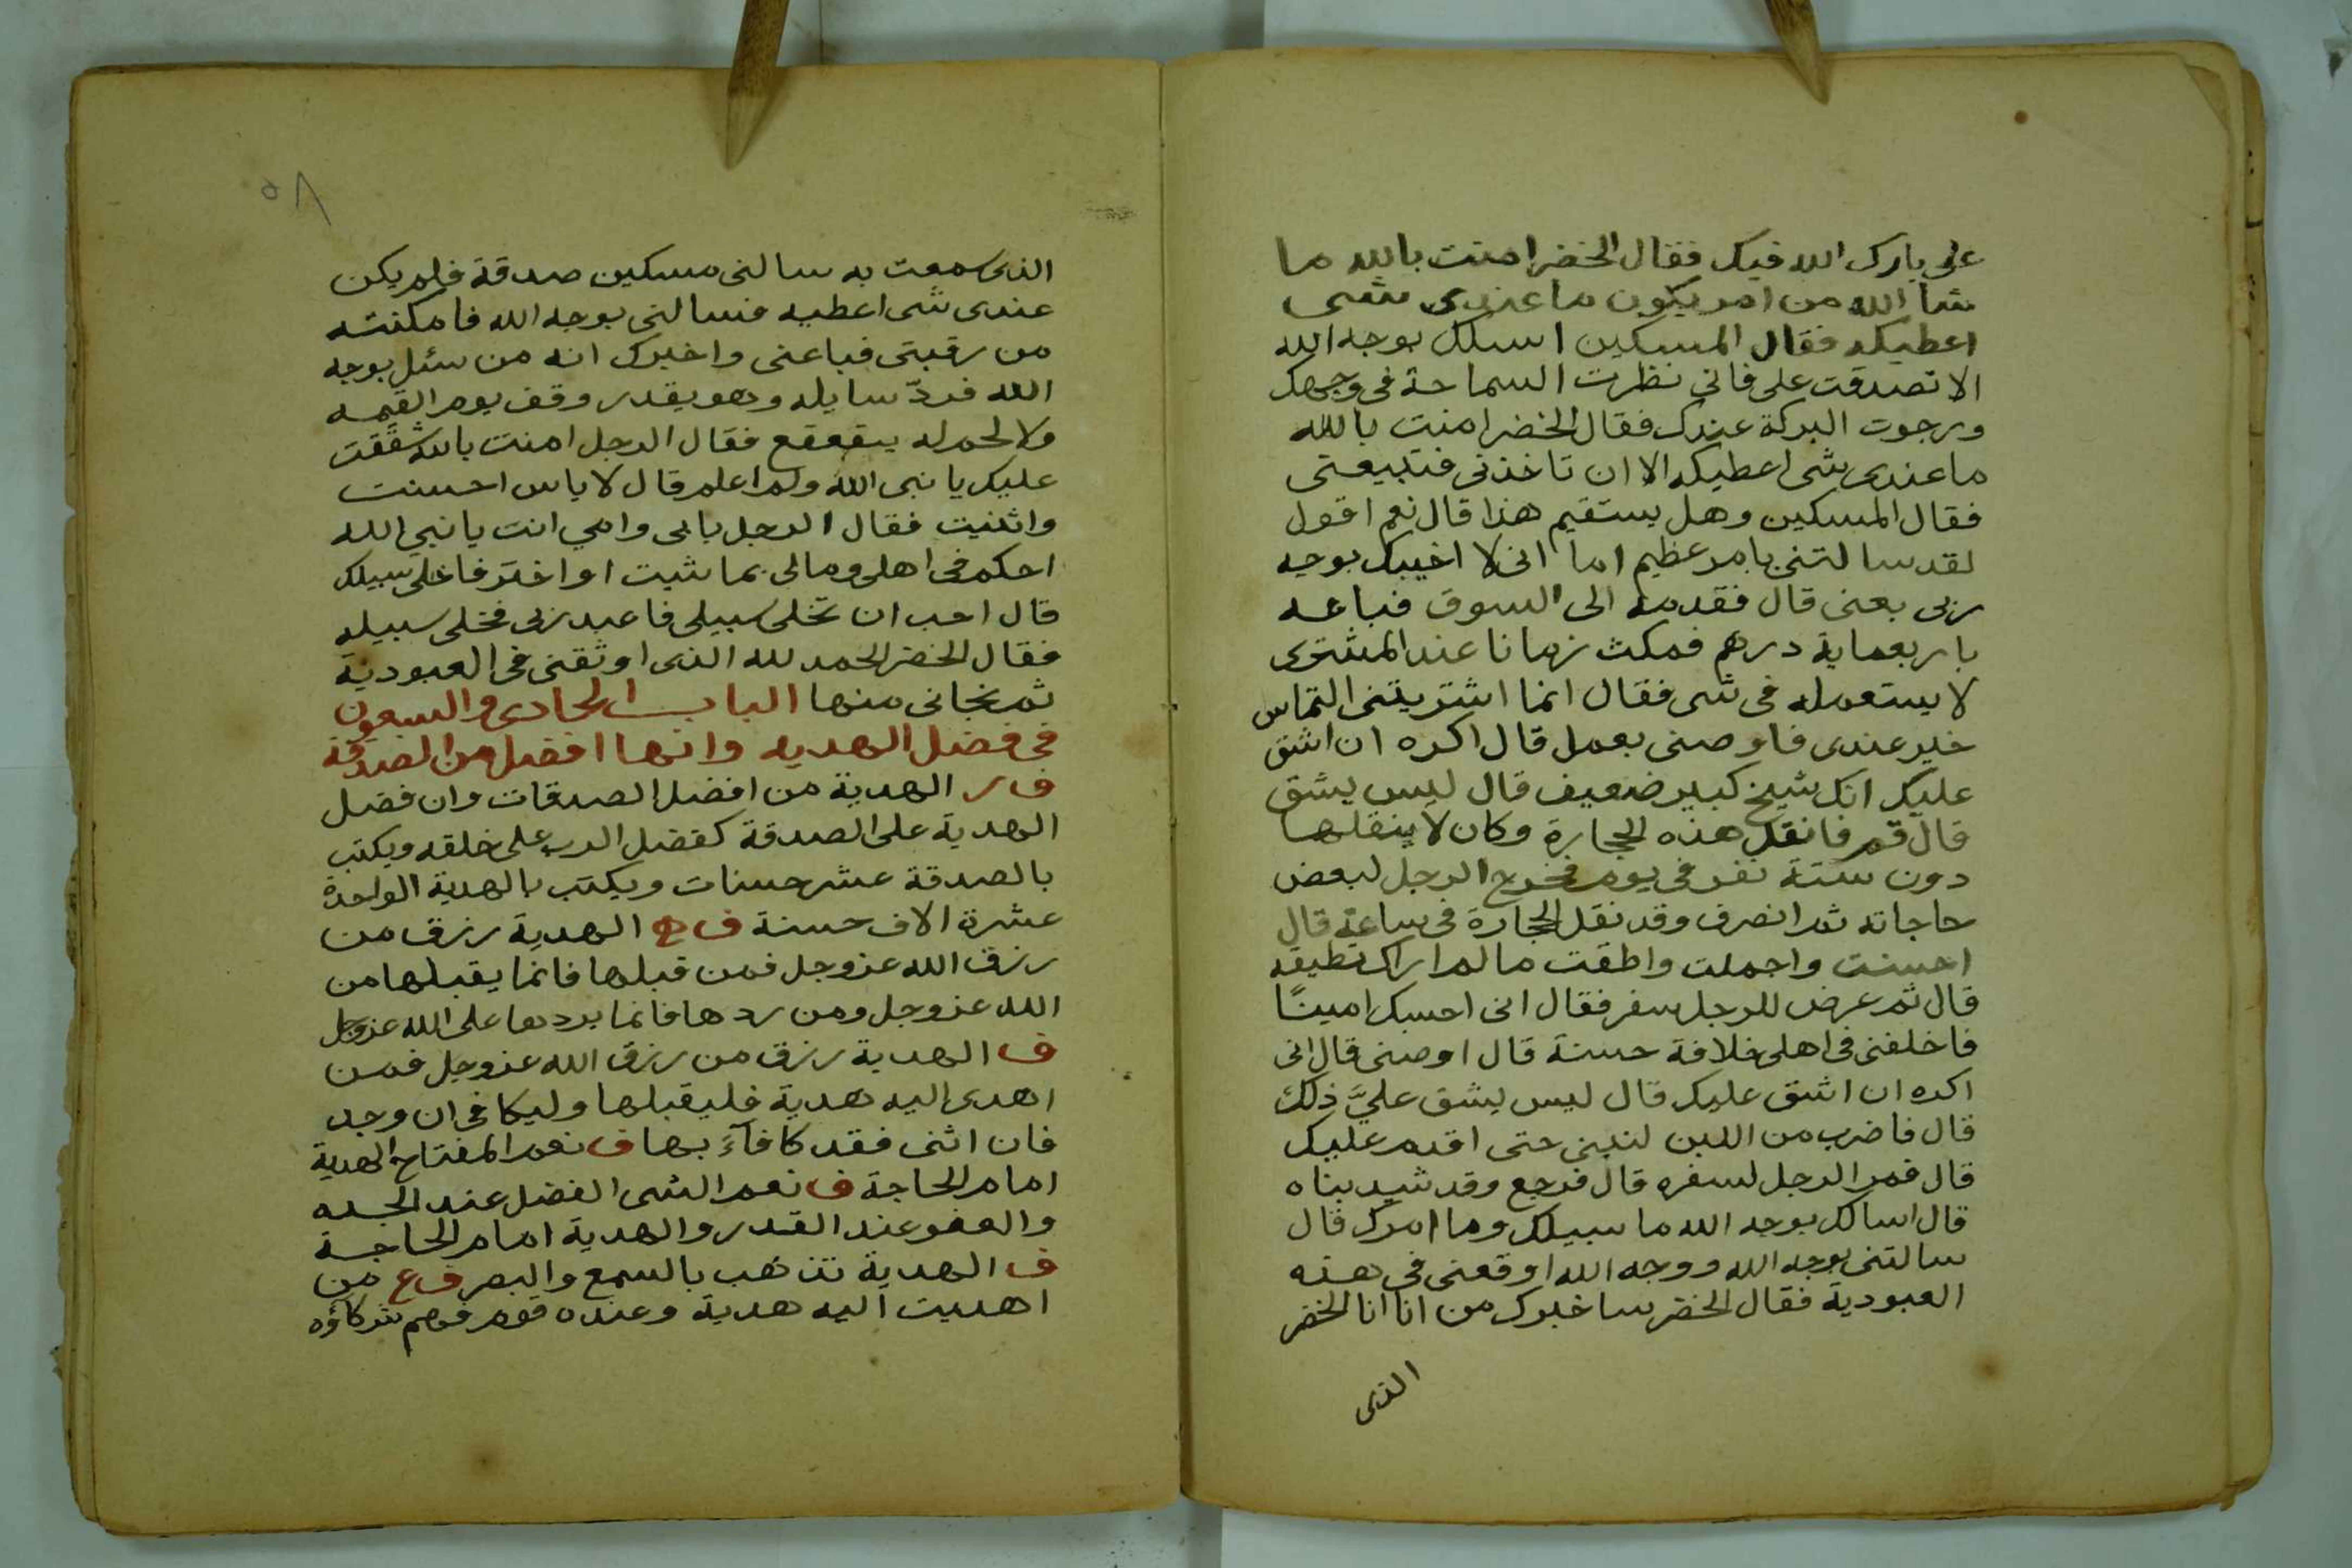 على بارك الله فيك فقال الخضر امنت بالله ما
شا الله من امر يكون ما عندى شى
اعطيكه فقال المسكين اسلك بوجه الله
الا تصدقت على فانى نظرت السماحة فى وجهك
ورجوت البركة عندك فقال الخضر امنت بالله
ما عندى شى اعطيكه الا ان تاخذنى فتبيعنى
فقال المسكين وهل يستقيم هذا قال نعم اقول
لقد سالتنى بامر عظيم اما انى لا اخيبك بوجه
ربى بعنى قال فقدمه الى السوق فباعه
باربعماية درهم فمكث زمانا عند المشترى
لا يستعمله فى شى فقال انما اشتريتنى التماس
خير عندى فاوصنى بعمل قال اكره ان اشق
عليك انك شيخ كبير ضعيف قال ليس يشق
قال قم فانقل هذه الحجارة وكان لا ينقلها
دون ستة نفر فى يوم فخرج الرجل لبعض
حاجاته ثم انصرف وقد نقل الحجارة فى ساعة قال
احسنت واجملت واطقت ما لم اراك تطيقه
قال ثم عرض للرجل سفر فقال انى احسبك امينًا
فاخلفنى فى اهلى خلافة حسنة قال اوصنى قال انى
اكره ان اشق عليك قال ليس يشق عليَّ ذلك
قال فاضرب من اللبن لبنى حتى اقدم عليك
قال فمر الرجل لسفره قال فرجع وقد شيد بناه
قال اسالك بوجه الله ما سبيلك وما امرك قال
سالتنى بوجه الله ووجه الله اوقعنى فى هذه
العبودية فقال الخضر ساخبرك من انا انا الخضر
الذى
٥٨
الذى سمعت به سالنى مسكين صدقة فلم يكن
عندى شى اعطيه فسالنى بوجه الله فامكنته
من رقبتى فباعنى واخبرك انه من سئل بوجه
الله فردّ سايله وهو يقدر وقف يوم القيمه
ولا لحم له يتقعقع فقال الرجل امنت بالله شققت
عليك يا نبى الله ولم اعلم قال لا باس احسنت
واثنيت فقال الرجل بابى وامي انت يا نبي الله
احكم فى اهلى ومالى بما شيت او اختر فاخلى سبيلك
قال احب ان تخلى سبيلى فاعبد ربى فخلى سبيله
فقال الخضر الحمد لله الذى اوثقنى فى العبودية
ثم نجانى منها الباب الحادى والسبعون
فى فضل الهديه وانها افضل من الصدقة
ف ر الهدية من افضل الصدقات وان فضل
الهدية على الصدقة كفضل الرب على خلقه ويكتب
بالصدقة عشر حسنات ويكتب بالهدية الواحدة
عشرة الاف حسنة ف ح الهدية رزق من
رزق الله عز وجل فمن قبلها فانما يقبلها من
الله عز وجل ومن ردها فانما يردها على الله عز وجل
ف الهدية رزق من رزق الله عز وجل فمن
اهدى اليه هدية فليقبلها وليكافى ان وجد
فان اثنى فقد كافآءَ بها ف نعم المفتاح الهدية
امام الحاجة ف نعم الشى الفضل عند الجده
والعفو عند القدر والهدية امام الحاجة
ف الهدية تذهب بالسمع والبصر ف ع من
اهديت اليه هدية وعنده قوم فهم شركاؤه